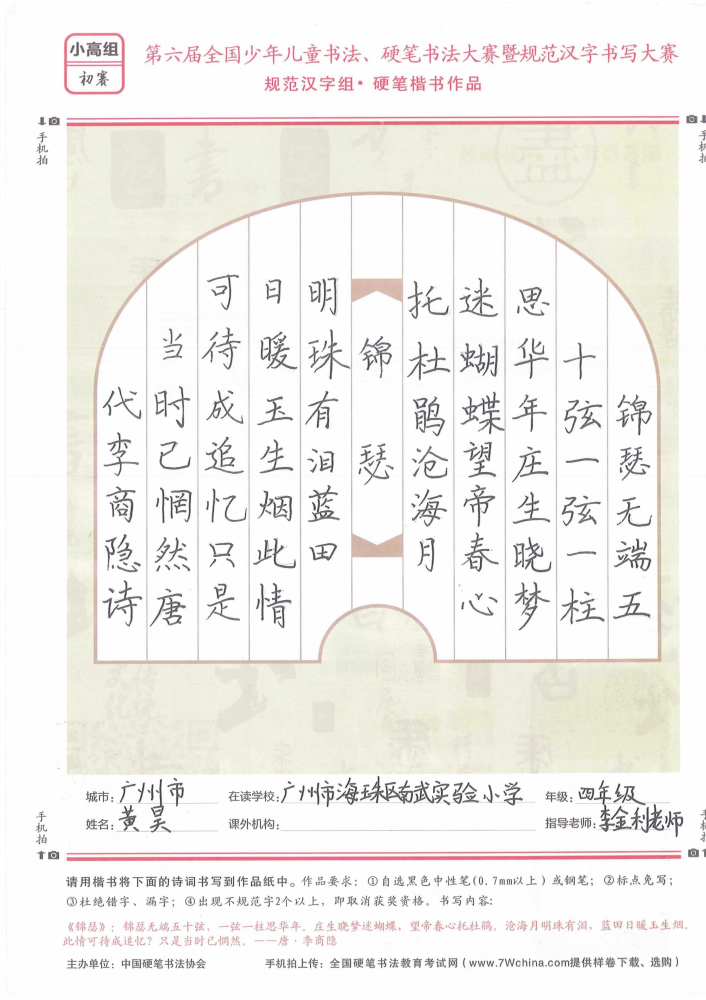 小高组
初赛
第六届全国少年儿童书法、硬笔书法大赛暨规范汉字书写大赛
规范汉字组·硬笔楷书作品
手机拍
手机拍
锦瑟无端五
十弦一弦一柱
思华年庄生晓梦
迷蝴蝶望帝春心
托杜鹃沧海月
锦瑟
明珠有泪蓝田
日暖玉生烟此情
可待成追忆只是
当时已惘然唐
代李商隐诗
城市:广州市
在读学校:广州市海珠区南武实验小学
年级:四年级
姓名:黄昊
课外机构:
指导老师:李金利老师
手机拍
手机拍
请用楷书将下面的诗词书写到作品纸中。作品要求：①自选黑色中性笔(0.7mm以上）或钢笔；②标点免写；
③杜绝错字、漏字；④出现不规范字2个以上，即取消获奖资格。书写内容:
《锦瑟》：锦瑟无端五十弦，一弦一柱思华年。庄生晓梦迷蝴蝶，望帝春心托杜鹃。沧海月明珠有泪，蓝田日暖玉生烟。
此情可待成追忆？只是当时已惘然。——唐·李商隐
主办单位：中国硬笔书法协会
手机拍上传：全国硬笔书法教育考试网（www.7Wchina.com提供样卷下载、选购）